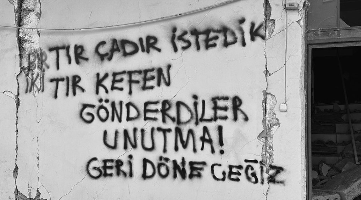 BİR TIR ÇADIR İSTEDİK
İKİ TIR KEFEN
GÖNDERDİLER
UNUTMA!
GERİ DÖNECEĞİZ